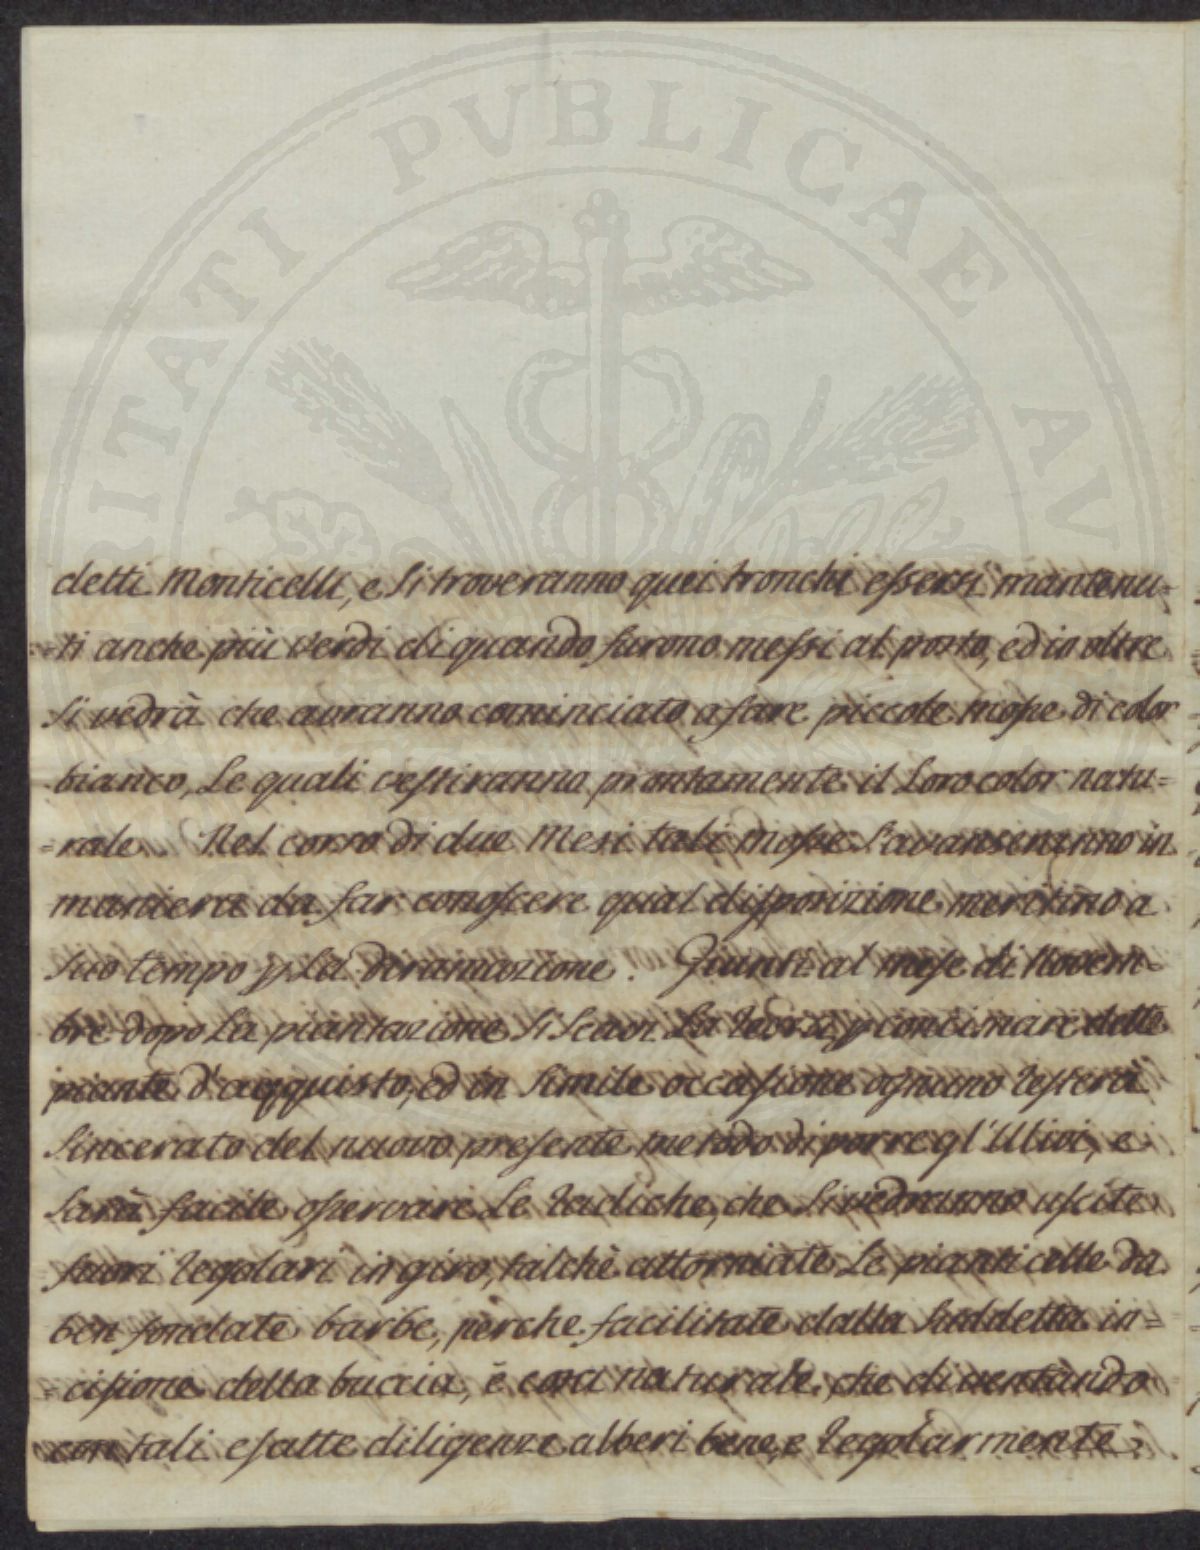 PROSPERITATI PVBLICAE AV
detti Monticelli, e si troveranno quei tronchi essersi mantenu=
=ti anche più verdi di quando furono messi al posto, ed in oltre
si vedrà che avranno cominciato a fare piccole messe di color
bianco, Le quali vestiranno prontamente il Loro color natu=
=rale. Nel corso di due Mesi tali messe s'avanseranno in
maniera da far conoscere qual disposizione meritino a
suo tempo p La diramazione. Giunti al mese di Novem=
bre dopo La piantazione si scavi La terra p concimare dette
piante d'acquisto, ed in simile occasione ognuno resterà
sincerato del nuovo presente metodo di porre gl'Ulivi, e
sarà facile osservare Le radiche, che si vedranno uscite
fuori regolari in giro, talchè attorniate Le pianticelle da
ben fondate barbe, perche facilitate dalla suddetta in=
=cisione della buccia, è cosa naturale, che diventando
con tali esatte diligenze alberi bene, e regolarmente